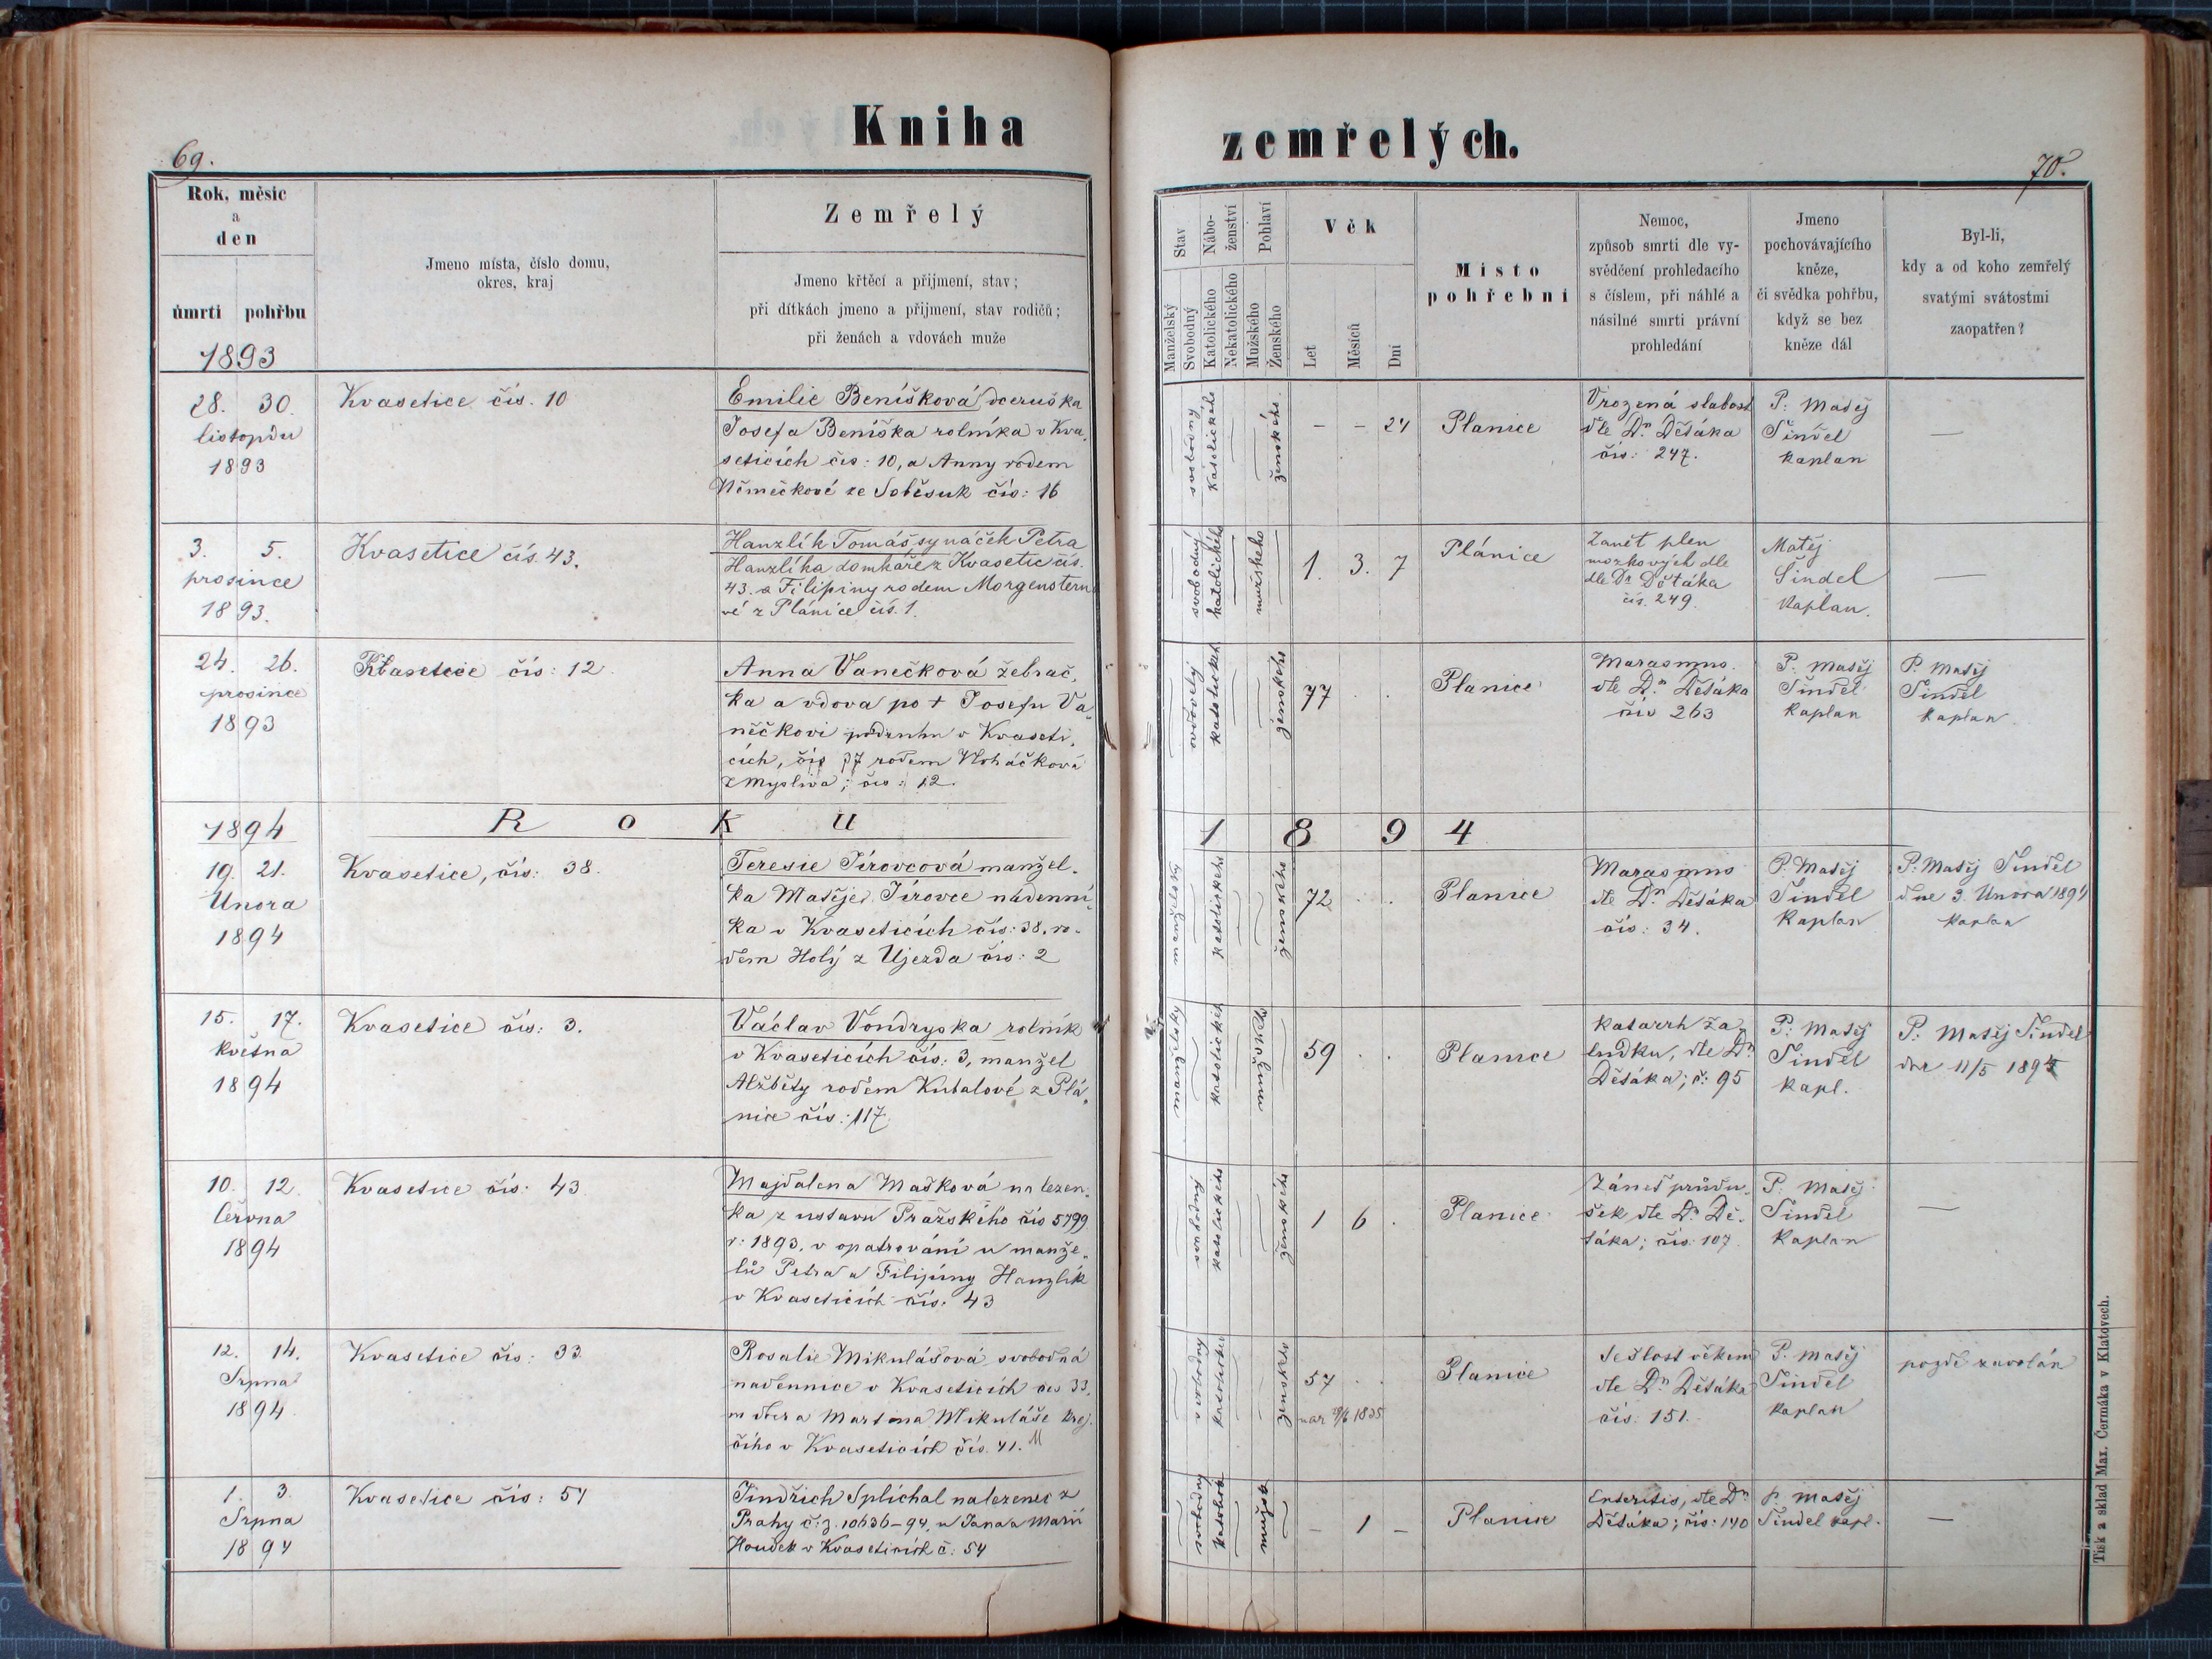 Kniha
zemřelých.
69.
70.
Rok, měsíc
a
den
úmrtí pohřbu
1893
Jmeno místa, číslo domu,
okres, kraj
Zemřelý
Jmeno křtěcí a příjmení, stav;
při dítkách jmeno a příjmení, stav rodičů;
při ženách a vdovách muže
Stav
Manželský
Svobodný
Nábo-
ženství
Katolického
Nekatolického
Pohlaví
Mužského
Ženského
Věk
Let
Měsíců
Dní
Místo
pohřební
Nemoc,
způsob smrti dle vy-
svědčení prohledacího
s číslem, při náhlé a
násilné smrti právní
prohledání
Jmeno
pochovávajícího
kněze,
či svědka pohřbu,
když se bez
kněze dál
Byl-li,
kdy a od koho zemřelý
svatými svátostmi
zaopatřen?
28. 30.
listopdu
1893
Kvasetice čís. 10
Emilie Benišková, dceruška
Josefa Beniška rolníka v Kva-
seticích čis: 10, a Anny rodem
Němečkové ze Soběsuk čís: 16
svobodný
katolického
ženského
- - 24
Planice
Vrozená slabost
dle Dra Děťáka
čís: 247.
P: Matěj
Šindel
kaplan
—
3. 5.
prosince
1893.
Kvasetice čís. 43.
Hanzlík Tomáš synáček Petra
Hanzlíka domkáře z Kvasetic čís.
43. a Filipiny rodem Morgenstern
vé z Plánice čís. 1.
svobodný
katolického
mužského
1. 3. 7
Plánice
Zanět plen
mozkových dle
dle Dr Děťáka
čís. 249.
Matěj
Šindel
Kaplan.
—
24. 26.
prosince
1893
Kvasetice čís: 12.
Anna Vanečková žebrač,
ka a vdova po † Josefu Va
něčkovi podruhu v Kvaseti,
cích, čís 37 rodem
z Mysliva; čis: 12.
ovdovělý
katolickéh
ženského
77 . .
Planice
Marasmus.
dle Dra Děťáka
čís 263
P: Matěj
Šindel
Kaplan
P. Matěj
Šindel
kaplan
1894
Roku
1894
19. 21.
Února
1894
Kvasetice, čís: 38.
Teresie Jírovcová manžel-
ka Matěje Jírovce nádenní-
ka v Kvaseticích čís: 38. ro-
dem Holý z Ujezda čís: 2
manželský
katolického
ženského
72 . .
Planice
Marasmus
dle Dra Děťáka
čís: 34.
P. Matěj
Šindel
Kaplan
P: Matěj Šindel
dne 3. Února 1894
kaplan
15. 17.
Května
1894
Kvasetice čís: 3.
Václav Vondryska rolník
v Kvaseticích čís: 3, manžel
Alžběty rodem Kubalové z Plá-
nice čís: 117.
manželský
katolickéh
mužského
59 . .
Planice
Katarrh ža-
ludku, dle Dra
Děťáka; č: 95
P: Matěj
Šindel
kapl.
P: Matěj Šindel
dne 11/5 1894
10. 12.
Června
1894
Kvasetice čís: 43
Majdalena Mašková nalezen-
ka z ustavu Pražského čís 5799
r: 1893, v opatrování u manže-
lů Petra a Filipiny Hanzlík
v Kvaseticích čís. 43
svobodný
katolického
ženského
1 6 .
Planice
Zánět průdu-
šek dle Dr. Dě-
ťáka; čís: 107.
P: Matěj
Šindel
Kaplan
—
12. 14.
Srpna
1894
Kvasetice čís: 33.
Rosalie Mikulášová, svobodná
nadennice v Kvaseticích čís 33,
dcera Martina Mikuláše krej-
čího v Kvaseticích čís. 41.
svobodný
ženského
57 . .
nar 1835
Planice
Sešlost věkem
dle Dra Děťáka
čís: 151.
P. Matěj
Šindel
kaplan
pozdě zavolán
1. 3.
Srpna
1894
Kvasetice čís: 54
Jindřich Splíchal nalezenec z
Prahy č: j. 10636-94, u Jana a Marii
Houdek v Kvaseticích č: 54
svobodný
mužsk
- 1 -
Planice
Enteritis, dle Dra
Děťáka; čís: 140
P. Matěj
Šindel kapl.
—
Tisk a sklad Max. Čermáka v Klatovech.